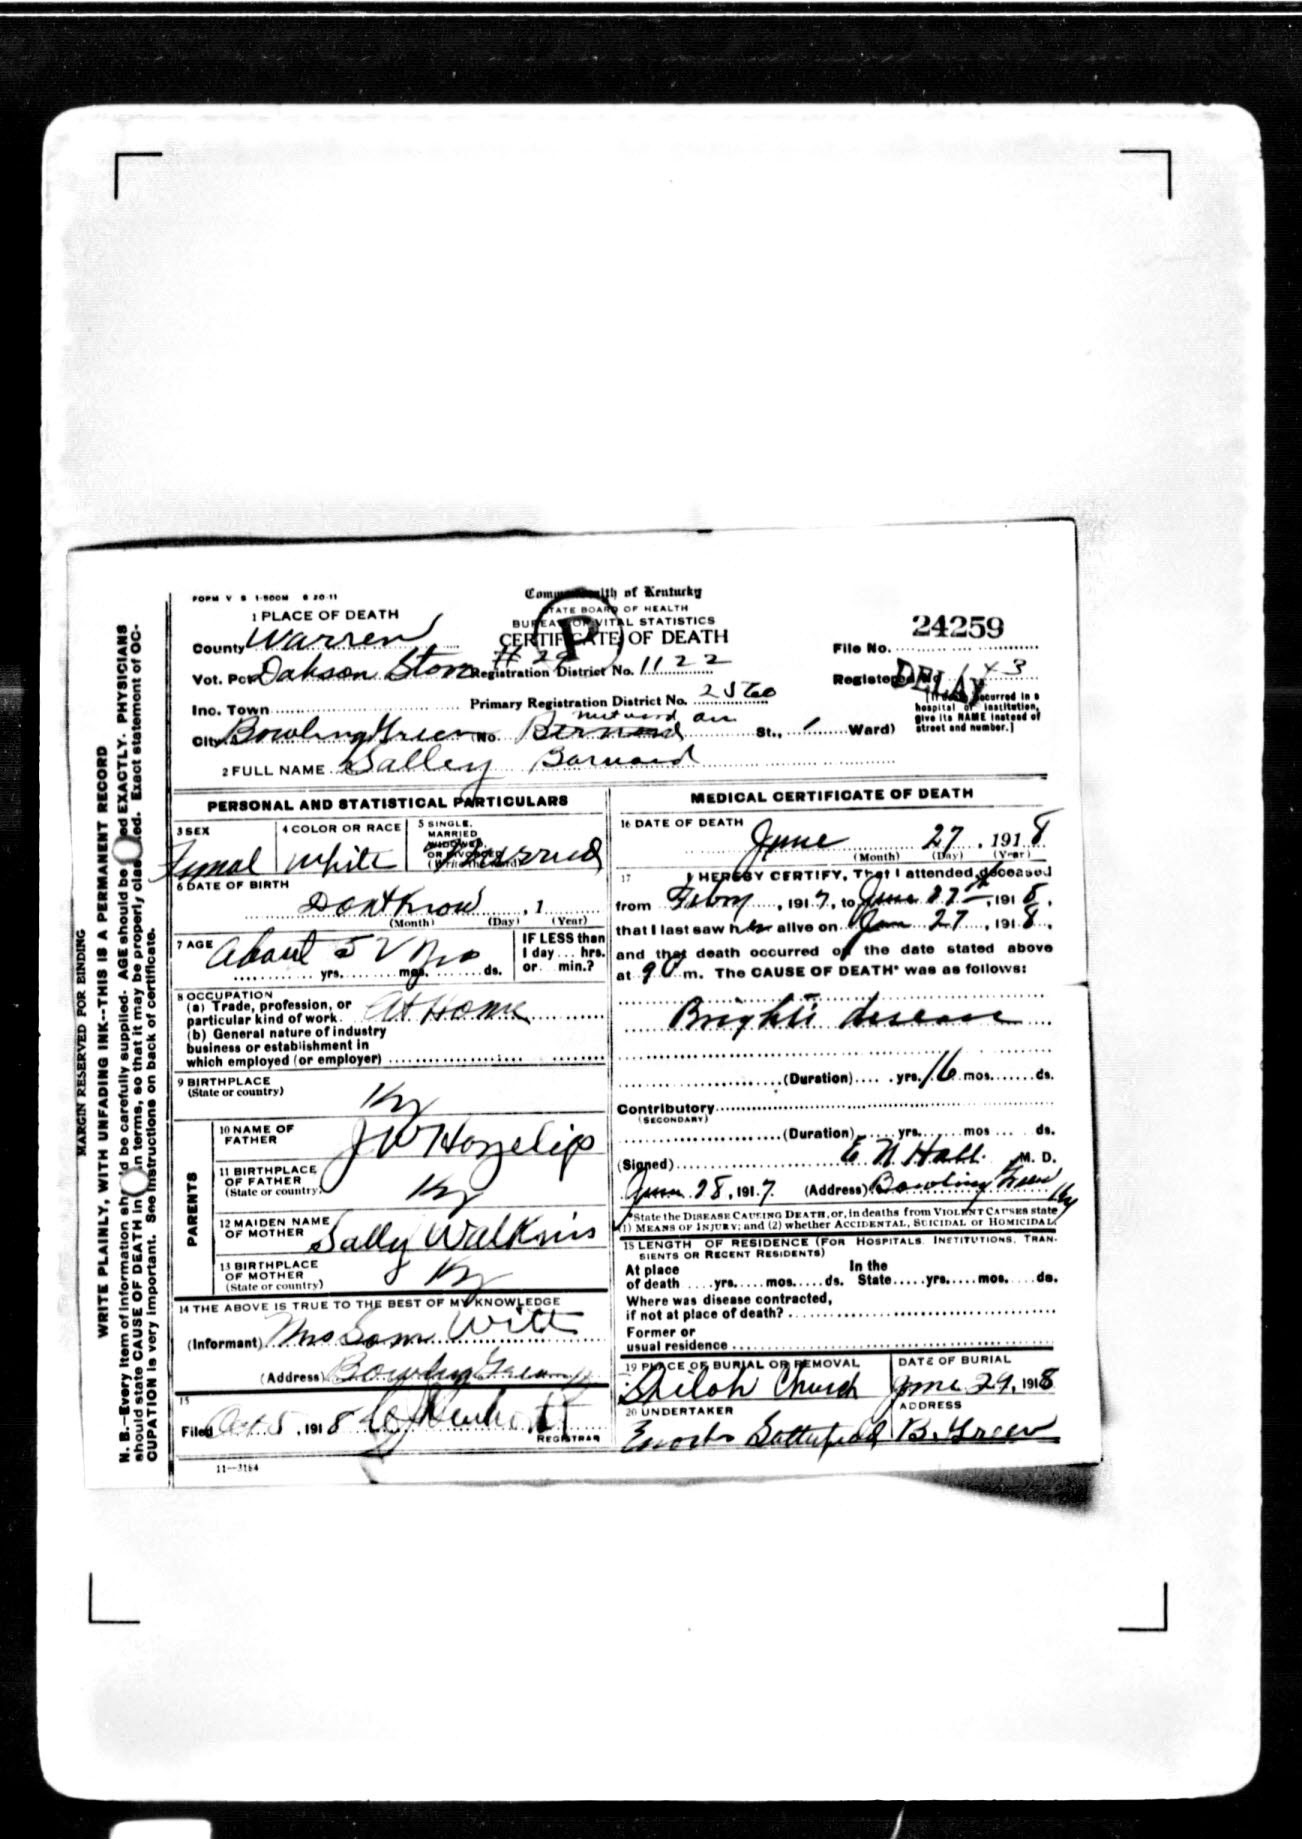 MARGIN RESERVED FOR BINDING
WRITE PLAINLY, WITH UNFADING INK--THIS IS A PERMANENT RECORD
N. B.--Every item of information should be carefully supplied. AGE should be EXACTLY. PHYSICIANS
should state CAUSE OF DEATH in terms, so that it may be properly Exact statement of OC-
CUPATION is very important. See instructions on back of certificate.
FORM V S 1-500M 6 20 11
Commonwealth of Kentucky
STATE BOARD OF HEALTH
BUREAU OF VITAL STATISTICS
CERTIFICATE OF DEATH
P
1 PLACE OF DEATH
County Warren
Vot. Pct # 29 Registration District No. 1122
Inc. Town Primary Registration District No. 2560
City Bowling Green No. St., Ward)
File No. 24259
Registered No 143
DELAY
[If death occurred in a
hospital or institution,
give its NAME instead of
street and number.]
2 FULL NAME Salley Barnard
PERSONAL AND STATISTICAL PARTICULARS
3 SEX Femal
4 COLOR OR RACE White
5 SINGLE, MARRIED WIDOWED, OR DIVORCED (Write the word) Married
6 DATE OF BIRTH
Dont Know , 1
(Month) (Day) (Year)
7 AGE About 5 yrs. mos. ds.
IF LESS than
1 day ... hrs.
or ... min.?
8 OCCUPATION
(a) Trade, profession, or
particular kind of work At Home
(b) General nature of industry
business or establishment in
which employed (or employer)
9 BIRTHPLACE
(State or country) Ky
PARENTS
10 NAME OF
FATHER J W Hazelip
11 BIRTHPLACE
OF FATHER
(State or country) Ky
12 MAIDEN NAME
OF MOTHER Sally Walkins
13 BIRTHPLACE
OF MOTHER
(State or country) Ky
14 THE ABOVE IS TRUE TO THE BEST OF MY KNOWLEDGE
(Informant) Mrs Sam Witt
(Address) Bowling Green Ky
15
Filed Oct 5, 1918
REGISTRAR
11—3184
MEDICAL CERTIFICATE OF DEATH
16 DATE OF DEATH
June 27, 1918
(Month) (Day) (Year)
17 I HEREBY CERTIFY, That I attended deceased
from Febry , 1917, to June 27th, 1918,
that I last saw her alive on June 27, 1918,
and that death occurred on the date stated above
at 9 m. The CAUSE OF DEATH* was as follows:
Brights disease
(Duration) yrs. 16 mos. ds.
Contributory
(SECONDARY)
(Duration) yrs. mos ds.
(Signed) E N Hall M. D.
June 28, 1917. (Address) Bowling Green Ky
*State the DISEASE CAUSING DEATH, or, in deaths from VIOLENT CAUSES state
(1) MEANS OF INJURY; and (2) whether ACCIDENTAL, SUICIDAL or HOMICIDAL.
18 LENGTH OF RESIDENCE (FOR HOSPITALS, INSTITUTIONS, TRAN-
SIENTS OR RECENT RESIDENTS)
At place In the
of death yrs. mos. ds. State yrs. mos. ds.
Where was disease contracted,
if not at place of death?
Former or
usual residence
19 PLACE OF BURIAL OR REMOVAL
Shiloh Church
DATE OF BURIAL
June 29, 1918
20 UNDERTAKER
ADDRESS
B. Green